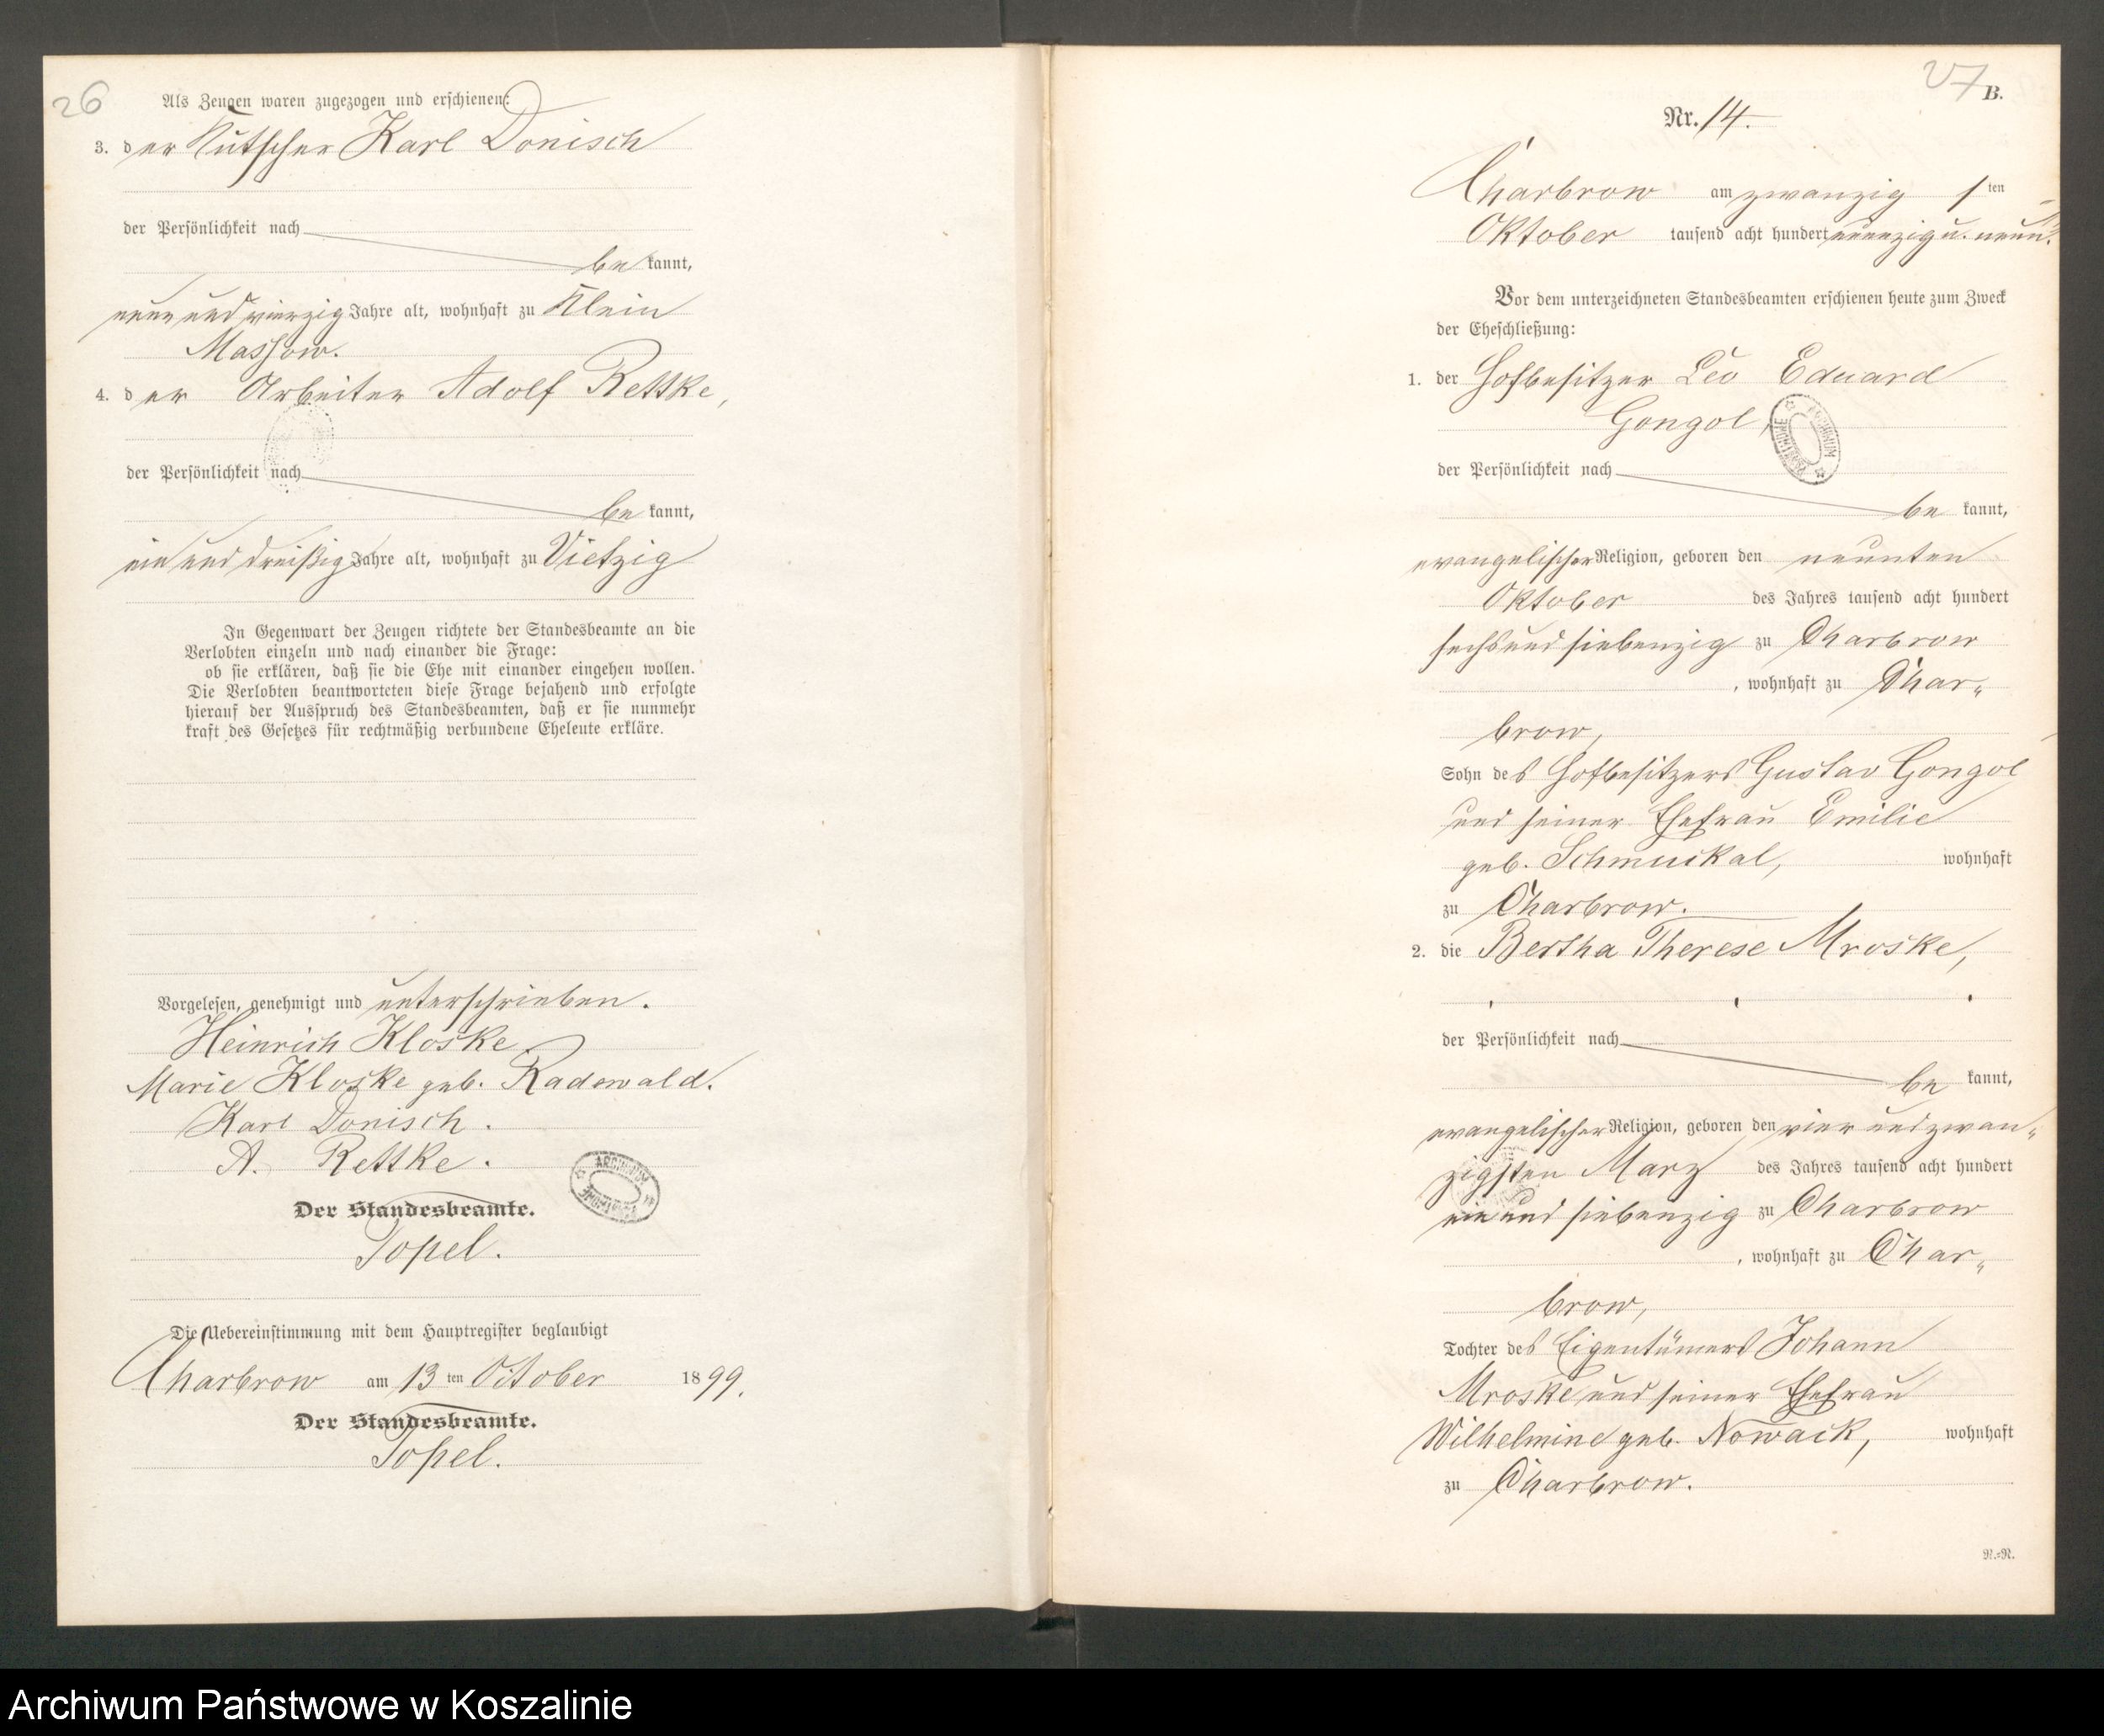 26
Als Zeugen waren zugezogen und erschienen:
3. der Kutscher Karl Donisch
der Persönlichkeit nach
be kannt,
neun und vierzig Jahre alt, wohnhaft zu Klein
Massow.
4. der Arbeiter Adolf Rettke,
der Persönlichkeit nach
be kannt,
ein und dreißig Jahre alt, wohnhaft zu Vietzig
In Gegenwart der Zeugen richtete der Standesbeamte an die
Verlobten einzeln und nach einander die Frage:
ob sie erklären, daß sie die Ehe mit einander eingehen wollen.
Die Verlobten beantworteten diese Frage bejahend und erfolgte
hierauf der Ausspruch des Standesbeamten, daß er sie nunmehr
kraft des Gesetzes für rechtmäßig verbundene Eheleute erkläre.
Vorgelesen, genehmigt und unterschrieben.
Heinrich Kloske
Marie Kloske geb. Radewald.
Karl Donisch.
A. Rettke.
ARCHIWUM
Der Standesbeamte.
Topel.
Die Uebereinstimmung mit dem Hauptregister beglaubigt
Charbrow am 13 ten Oktober 1899.
Der Standesbeamte.
Topel.
27
B.
Nr. 14.
Charbrow am zwanzig sten
Oktober tausend acht hundert neunzig u. neun.
Vor dem unterzeichneten Standesbeamten erschienen heute zum Zweck
der Eheschließung:
1. der Hofbesitzer Leo Eduard
Gongol,
ARCHIWUM
der Persönlichkeit nach
be kannt,
evangelischer Religion, geboren den neunten
Oktober des Jahres tausend acht hundert
sechs und siebenzig zu Charbrow
, wohnhaft zu Char„
brow,
Sohn des Hofbesitzers Gustav Gongol
und seiner Ehefrau Emilie
geb. Schmuckal, wohnhaft
zu Charbrow.
2. die Bertha Therese Mroske,
der Persönlichkeit nach
be kannt,
evangelischer Religion, geboren den vier und zwan„
zigsten Marz des Jahres tausend acht hundert
ein und siebenzig zu Charbrow
, wohnhaft zu Char„
brow,
Tochter des Eigentümers Johann
Mroske und seiner Ehefrau
Wilhelmine geb. Nowack, wohnhaft
zu Charbrow.
N.=N.
Archiwum Państwowe w Koszalinie